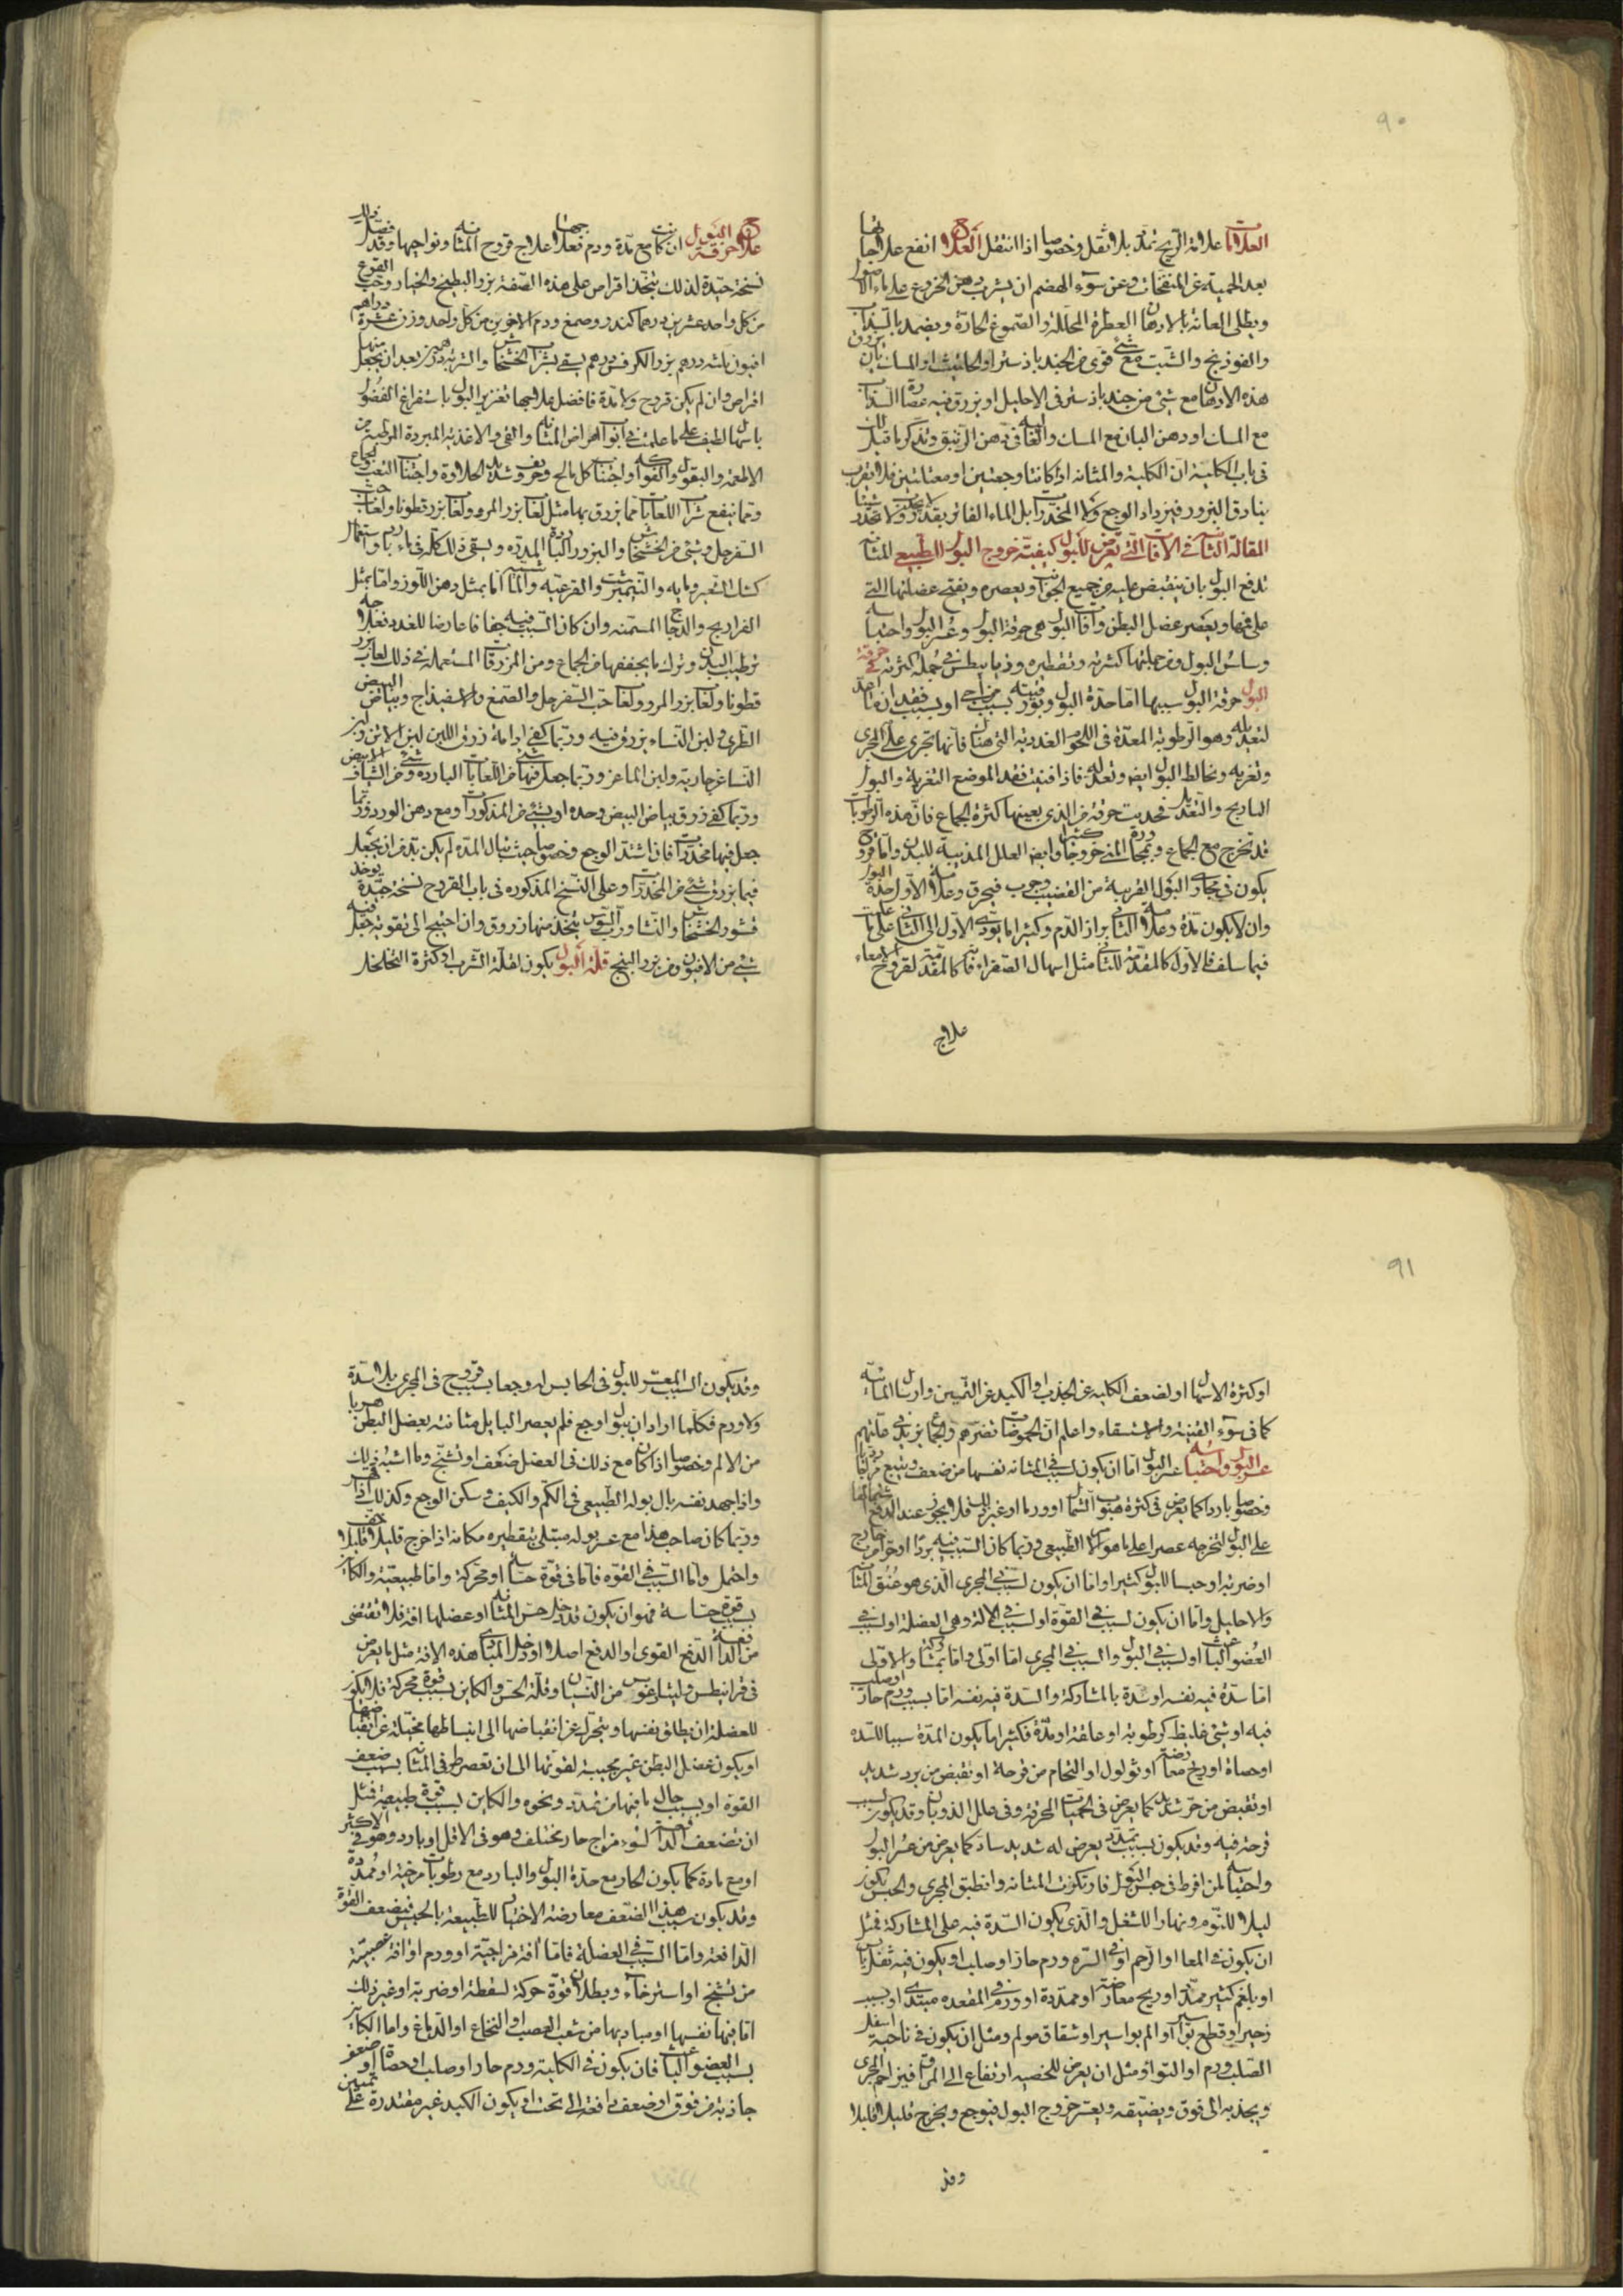 ٩٠
العلامات علامة الريح تمدد بلا ثقل وخصوصا اذا انتقل العلاج انفع علاجاتها
بعد الحمية عن المنفخات وعن سوء الهضم ان يشرب دهن الخروع على ماء الاصول
ويطلى العانة بالادهان العطرة المحللة والصموغ الحارة ويضمد بالسذاب
والفوذنج والشبت مع شئ قوى من الجندباذستر او الحلتيت او المسك بان يزرق
هذه الادهان مع شئ من جندباذستر فى الاحليل او يزرق فيه عصارة السذاب
مع المسك او دهن البان مع المسك وايضا فى دهن الزنبق وتذكر ما قيل لك
فى باب الكلية ان الكلية والمثانة اذا كانتا وجعتين او معتلتين فلا تقرب
بنادق البزور فيزداد الوجع ولا المخدرات بل الماء الفاتر بقدر ولا تخدر شيئا
المقالة الثانية فى الآفات التى تعرض للبول كيفية خروج البول الطبيعى المثانة
تدفع البول بان ينقبض عليه من جميع الجوانب ويعصره ويفتح عضلتها التى
على فمها ويعصر عضل البطن وآفات البول هى حرقة البول وعسر البول واحتباسه
وسلس البول ومن جملتها كثرته وتقطيره وذيابيطس فى جملة كثرته فى حرقة
البول حرقة البول سببها اما حدة البول وبورقيته بسبب مزاجى او بسبب فقدان ما اعد
لتعديله وهو الرطوبة المعدة فى اللحوم الغددية التى هناك فانها تجرى على المجرى
وتغريه وتخالط البول ايضا وتعدله فاذا فنيت فقد الموضع التغرية والبول
التدريج والتعديل فحدثت حرقة من الذى يعينها كثرة الجماع فان هذه الرطوبات
قد تخرج مع الجماع ومجاورة المنى خروجا كثيرا وايضا العلل المذيبة للبدن واما قروح
يكون فى مجارى البول القريبة من القضيب وجرب فيحرق وعلامة الاول حدة البول
وان لا يكون مدة وعلامة الثانى براز الدم وكثيرا ما يؤدى الاول الى الثانى على ما علمت
فيما سلف فالاول كالمقدمة للثانى مثل اسهال الصفراء فانه كالمقدمة لقروح الامعاء
علاج
علاج حرقة البول ان كانت مع مدة ودم فعلاجها علاج قروح المثانة ونواحيها وقد فصل ذلك
نسخة جيدة لذلك يتخذ اقراص على هذه الصفة بزر البطيخ والخيار وحب القرع
من كل واحد عشرين درهما كندر وصمغ ودم الاخوين من كل واحد وزن عشرة دراهم
افيون ثلثه دراهم بزر الكرفس درهم يسقى بشراب الخشخاش والشربة درهمين بعد ان يجعل منها
اقراص وان لم يكن قروح ولا مدة فافضل علاجها تغزير البول باستفراغ الفضول
باسهال لطيف على ما علمت فى ابواب امراض المثانة والقئ والاغذية المبردة المرطبة من
الاطعمة والبقول والفواكه واجتناب كل مالح وحريف وشديد الحلاوة واجتناب التعب والجماع
ومما ينفع شرب اللعابات مما يزرق بها مثل لعاب بزر المرو ولعاب بزر قطونا ولعاب حب
السفرجل وشئ من الخشخاش والبزور الباردة المدرة ويسقى ذلك كله فى ماء بارد واستعمال
كشك الشعير ومائه والنيمبرشت والقرعية والماشية اما بمثل دهن اللوز واما بمثل
الفراريج والدجاج المسمنة وان كان السبب فيه جفافا عارضا للغدد فعلاجه
ترطيب البدن وترك ما يجففها من الجماع ومن المزرقات المستعملة فى ذلك لعاب بزر
قطونا ولعاب بزر المرو ولعاب حب السفرجل والصمغ والاسفيذاج وبياض البيض
الطرى ولبن النساء يزرق فيه وربما كفى ادامة زرق اللبن لبن الاتن ولبن
النساء عن جارية ولبن الماعز وربما جعل فيها شئ من اللعابات الباردة وشئ من الشياف الابيض
وربما كفى زرق بياض البيض وحده او بشئ من المذكورات ومع دهن الورد وربما
جعل فيها مخدرات فان اشتد الوجع وخصوصا حيث تبال المدة لم يكن بد من ان يجعل
فيما يزرق شئ من المخدرات وعلى النسخ المذكورة فى باب القروح نسخة جيدة يوخذ
قشور الخشخاش والنشا ورب السوس يتخذ منها زروق وان احتيج الى تقوية جعل فيه
شئ من الافيون ومن بزر البنج قلة البول يكون لقلة الشرب او كثرة التخلخل
٩١
او كثرة الاسهال او لضعف الكلية عن الجذب او الكبد عن التمييز وارسال المائية
كما فى سوء القنية والاستسقاء واعلم ان الحموضات تضرهم والجماع يزيد فى علتهم
عسر البول واحتباسه عسر البول اما ان يكون لسبب فى المثانة نفسها من ضعف ويتبع مزاجا رديا
وخصوصا باردا كما يعرض فى كثرة هبوب الشمال او ورما او غير ذلك فلا يجوز عند الدفع
على البول لتخرجه عصرا على ما هو الامر الطبيعى وربما كان السبب فيه بردا او حرا من خارج
او ضربة او حبسا للبول كثيرا واما ان يكون لسبب فى المجرى الذى هو عنق المثانة
والاحليل واما ان يكون لسبب فى القوة او لسبب فى الآلة وهى العضلة او لسبب فى
العضو الباعث او لسبب فى البول والسبب فى المجرى اما اولى واما بمشاركة والاولى
اما سدة فيه نفسه او سدة بالمشاركة والسدة فيه نفسه اما بسبب ورم حار او صلب
فيه او شئ غليظ كرطوبة او علقة او مدة فكثيرا ما يكون المدة سببا للسدة
او حصاة او ريح معارضة او ثولول او التحام من قرحة او تقبض من برد شديد
او تقبض من حر شديد كما يعرض فى الحميات المحرقة وفى علل الذوبان وقد يكون لسبب
قرحة فيه وقد يكون بسبب تمدد يعرض له شديد ساد كما يعرض من عسر البول
واحتباسه لمن افرط فى حبس البول فارتكزت المثانة وانطبق المجرى والحبس يكون
ليلا للنوم ونهارا للشغل والذى يكون السدة فيه على المشاركة فمثل
ان يكون فى المعا او الرحم او فى السرة ورم حار او صلب او يكون فيه ثفل يابس
او بلغم كثير ممدد او ريح معارضة او ممددة او ورم فى المقعدة مبتدى او بسبب
زحير او قطع بواسير او الم بواسير او شقاق مولم ومثل ان يكون فى ناحية اسفل
الصلب ورم او التواء ومثل ان يعرض للخصية ارتفاع الى المراق فيزاحم المجرى
ويجذبه الى فوق ويضيقه ويعسر خروج البول فيوجع ويخرج قليلا قليلا
وقد
وقد يكون السبب المعسر للبول فى الحابس له وجعا بسبب قروح فى المجرى بلا سدة
ولا ورم فكلما اراد ان يبول اوجع فلم يعصر البايل مثانته بعضل البطن هربا
من الالم وخصوصا اذا كان مع ذلك فى العضل ضعف او تشنج وما اشبه ذلك
واذا جهد نفسه بال بوله الطبيعى فى الكم والكيف وسكن الوجع وكذلك اذا
وربما كان صاحب هذا مع عسر بوله مبتلى بتقطيره مكانه اذا خرج قليلا قليلا خف
واحتمل واما السبب فى القوة فاما فى قوة حساسة او محركة واما طبيعية والكائن
بسبب قوة حساسة فهو ان يكون قد دخل حس المثانة او عضلها آفة فلا تقتضى
من الدافعة الدفع القوى او الدفع اصلا او دخل المبادى هذه الافة مثل ما يعرض
فى قرانيطس وليثارغوس من النسيان وقلة الحس والكاين بسبب قوة محركة فلا يكون
للعضلة ان يطلق نفسها ويتحرك عن انقباضها الى انبساطها مخيلة عن انقباضها
او يكون عضل البطن غير مجيبة لقوتها الى ان تعصر ما فى المثانة بسبب ضعف
القوة او بسبب حال ما فيها من تمدد ونحوه والكاين لسبب قوة طبيعية فمثل
ان تضعف الدافعة لسوء مزاج حار مختلف وهو فى الاقل او بارد وهو فى الاكثر
او مع مادة كما يكون الحار مع حدة البول والبارد مع رطوبات مرخية او ممددة
وقد يكون سبب هذا الضعف معارضة الاختيار للطبيعة بالحبس فيضعف القوة
الدافعة واما السبب فى العضلة فاما آفة مزاجية او ورم او افة عصبية
من تشنج او استرخاء وبطلان قوة حركة لسقطة او ضربة او غير ذلك
اما فيها نفسها او مباديها من شعب العصب او النخاع او الدماغ واما الكائن
بسبب العضو الباعث فان يكون فى الكلية ورم حار او صلب او حصاة او ضعف
جاذبة من فوق او ضعف دافعة الى تحت او يكون الكبد غير مقتدرة على تمييز